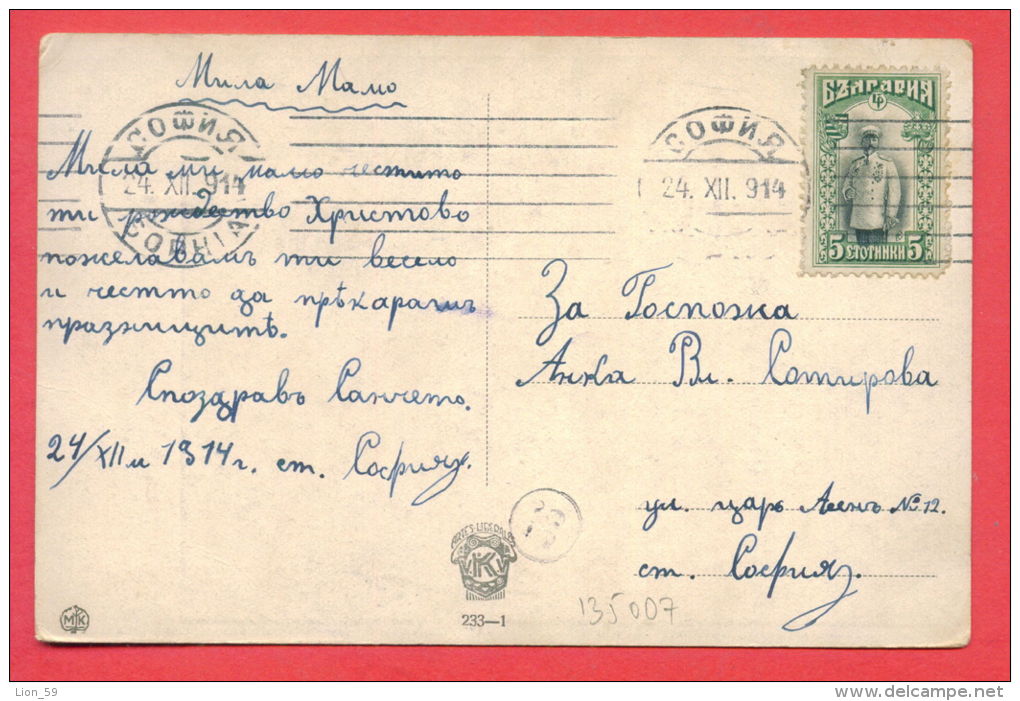 Мила Мамо
СОФИЯ
24. XII. 914
СОФИЯ
24. XII. 914
БЪЛГАРИЯ
5 СТОТИНКИ 5
Мила ми мамо честито
ти рождество Христово
пожелавамъ ти весело
и честто да прѣкарашъ
празницитѣ.
Споздравъ Санчето.
24/XII м 1914 г. ст. София.
За Госпожа
Анка Вл. Сотирова
ул. царь Асенъ No. 12.
ст. София.
ARTES LIBERALES
K
233—1
MK
135007
Lion_59
delcampe.net